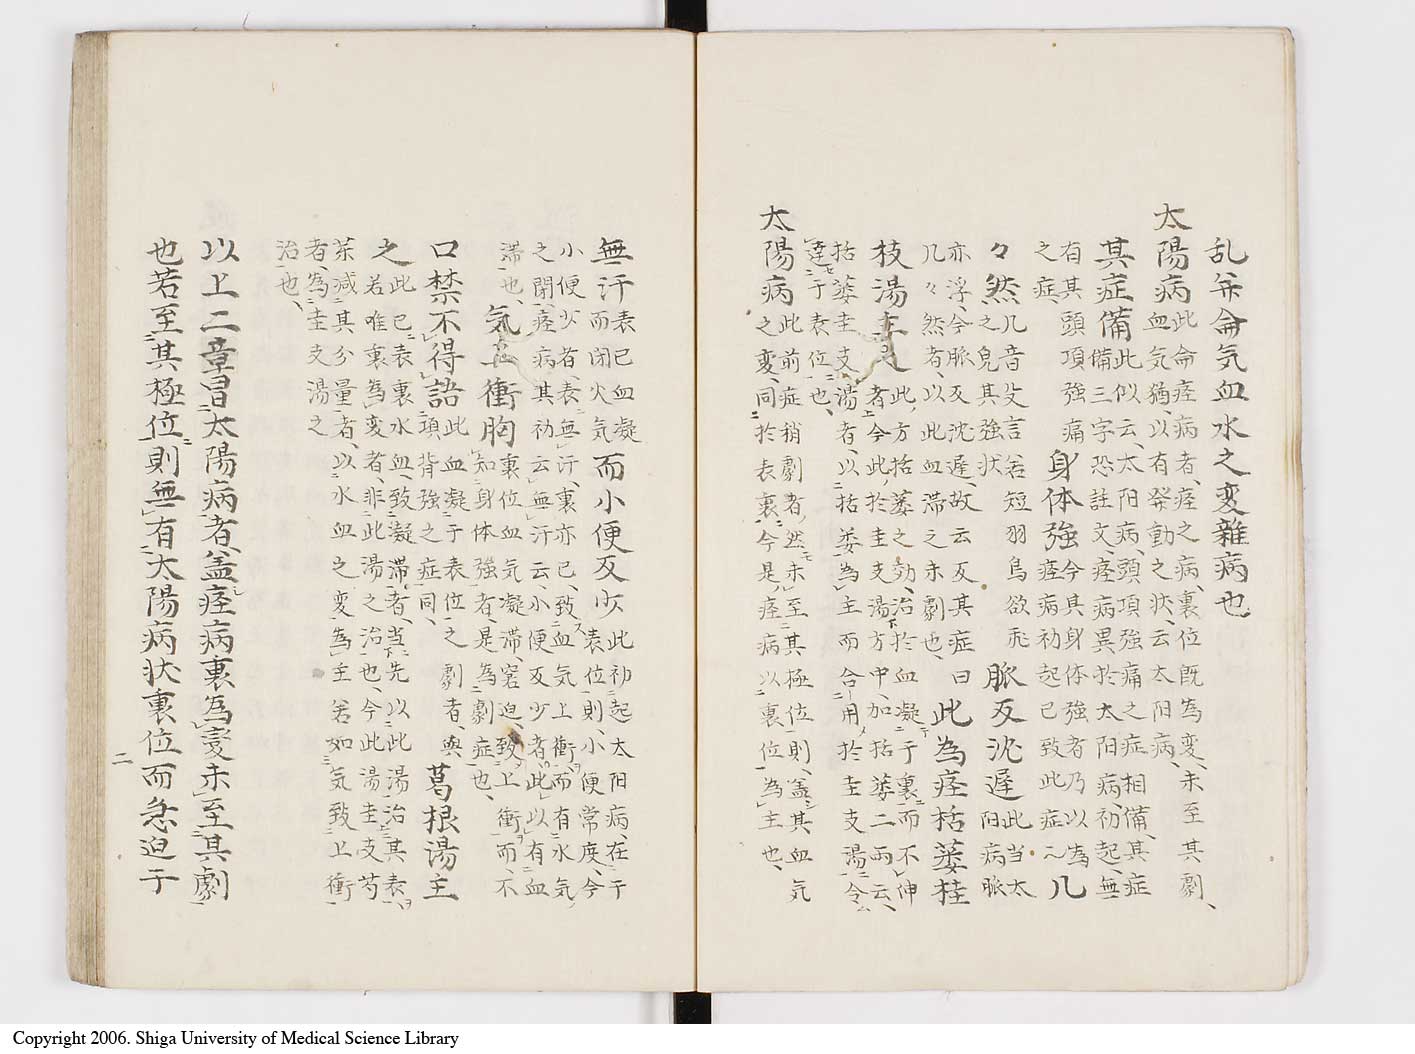 乱弁侖気血水之変雑病也
太陽病此侖痙病者、痙之病、裏位既為変、未至其劇、
血気猶、以有発動之状、云太阳病、
其症備此似云、太阳病、頭項強痛之症相備、其症
備三字恐註文、痙病異於太阳病、初起、無
有其頭項強痛
之症、
身体強今其身体強者乃以為
痙病初起已致此症〜
几
々然几音殳言若短羽鳥欲飛
之皃其強状
脈反沈遅此当太
阳病脈
亦浮今脈反沈遅、故云反其症
几々然者、以此血滞之未劇也、
曰此為痙栝蔞桂
枝湯主是此方栝蔞之効、治於血凝于裏而不伸
者今此於圭支湯方中、加栝蔞二両云、
栝蔞圭支湯者、以栝蔞為主而合用於圭支湯令
達于表位也、
太陽病此前症稍劇者、然未至其極位則、盖其血気
之変、同於表裏、今是、痙病以裏位為主也、
無汗表已血凝
而閉火気
而小便反少此初起太阳病、在于
表位則、小便常度、今
小便少者、表無汗、裏亦已、致血気上衝而有水気
之閉、痙病其初云無汗云、小便反少者此以有血
滞也、
気上衝胸裏位血気凝滞、窘迫、致上衝而、不
知身体強者、是為劇症也、
口禁不得語此血凝于表位之劇者、與
項背強之症同、
葛根湯主
之此已表裏水血、致凝滞者、当先以此湯治其表、
若唯裏為変者、非此湯之治也、今此湯圭支芍
茶減其分量者、以水血之変為主若如気致上衝
者、為圭支湯之
治也、
以上二章冒太陽病者、盖痙病裏為変未至其劇
也若至其極位則無有太陽病状裏位而急迫于
二
Copyright 2006. Shiga University of Medical Science Library